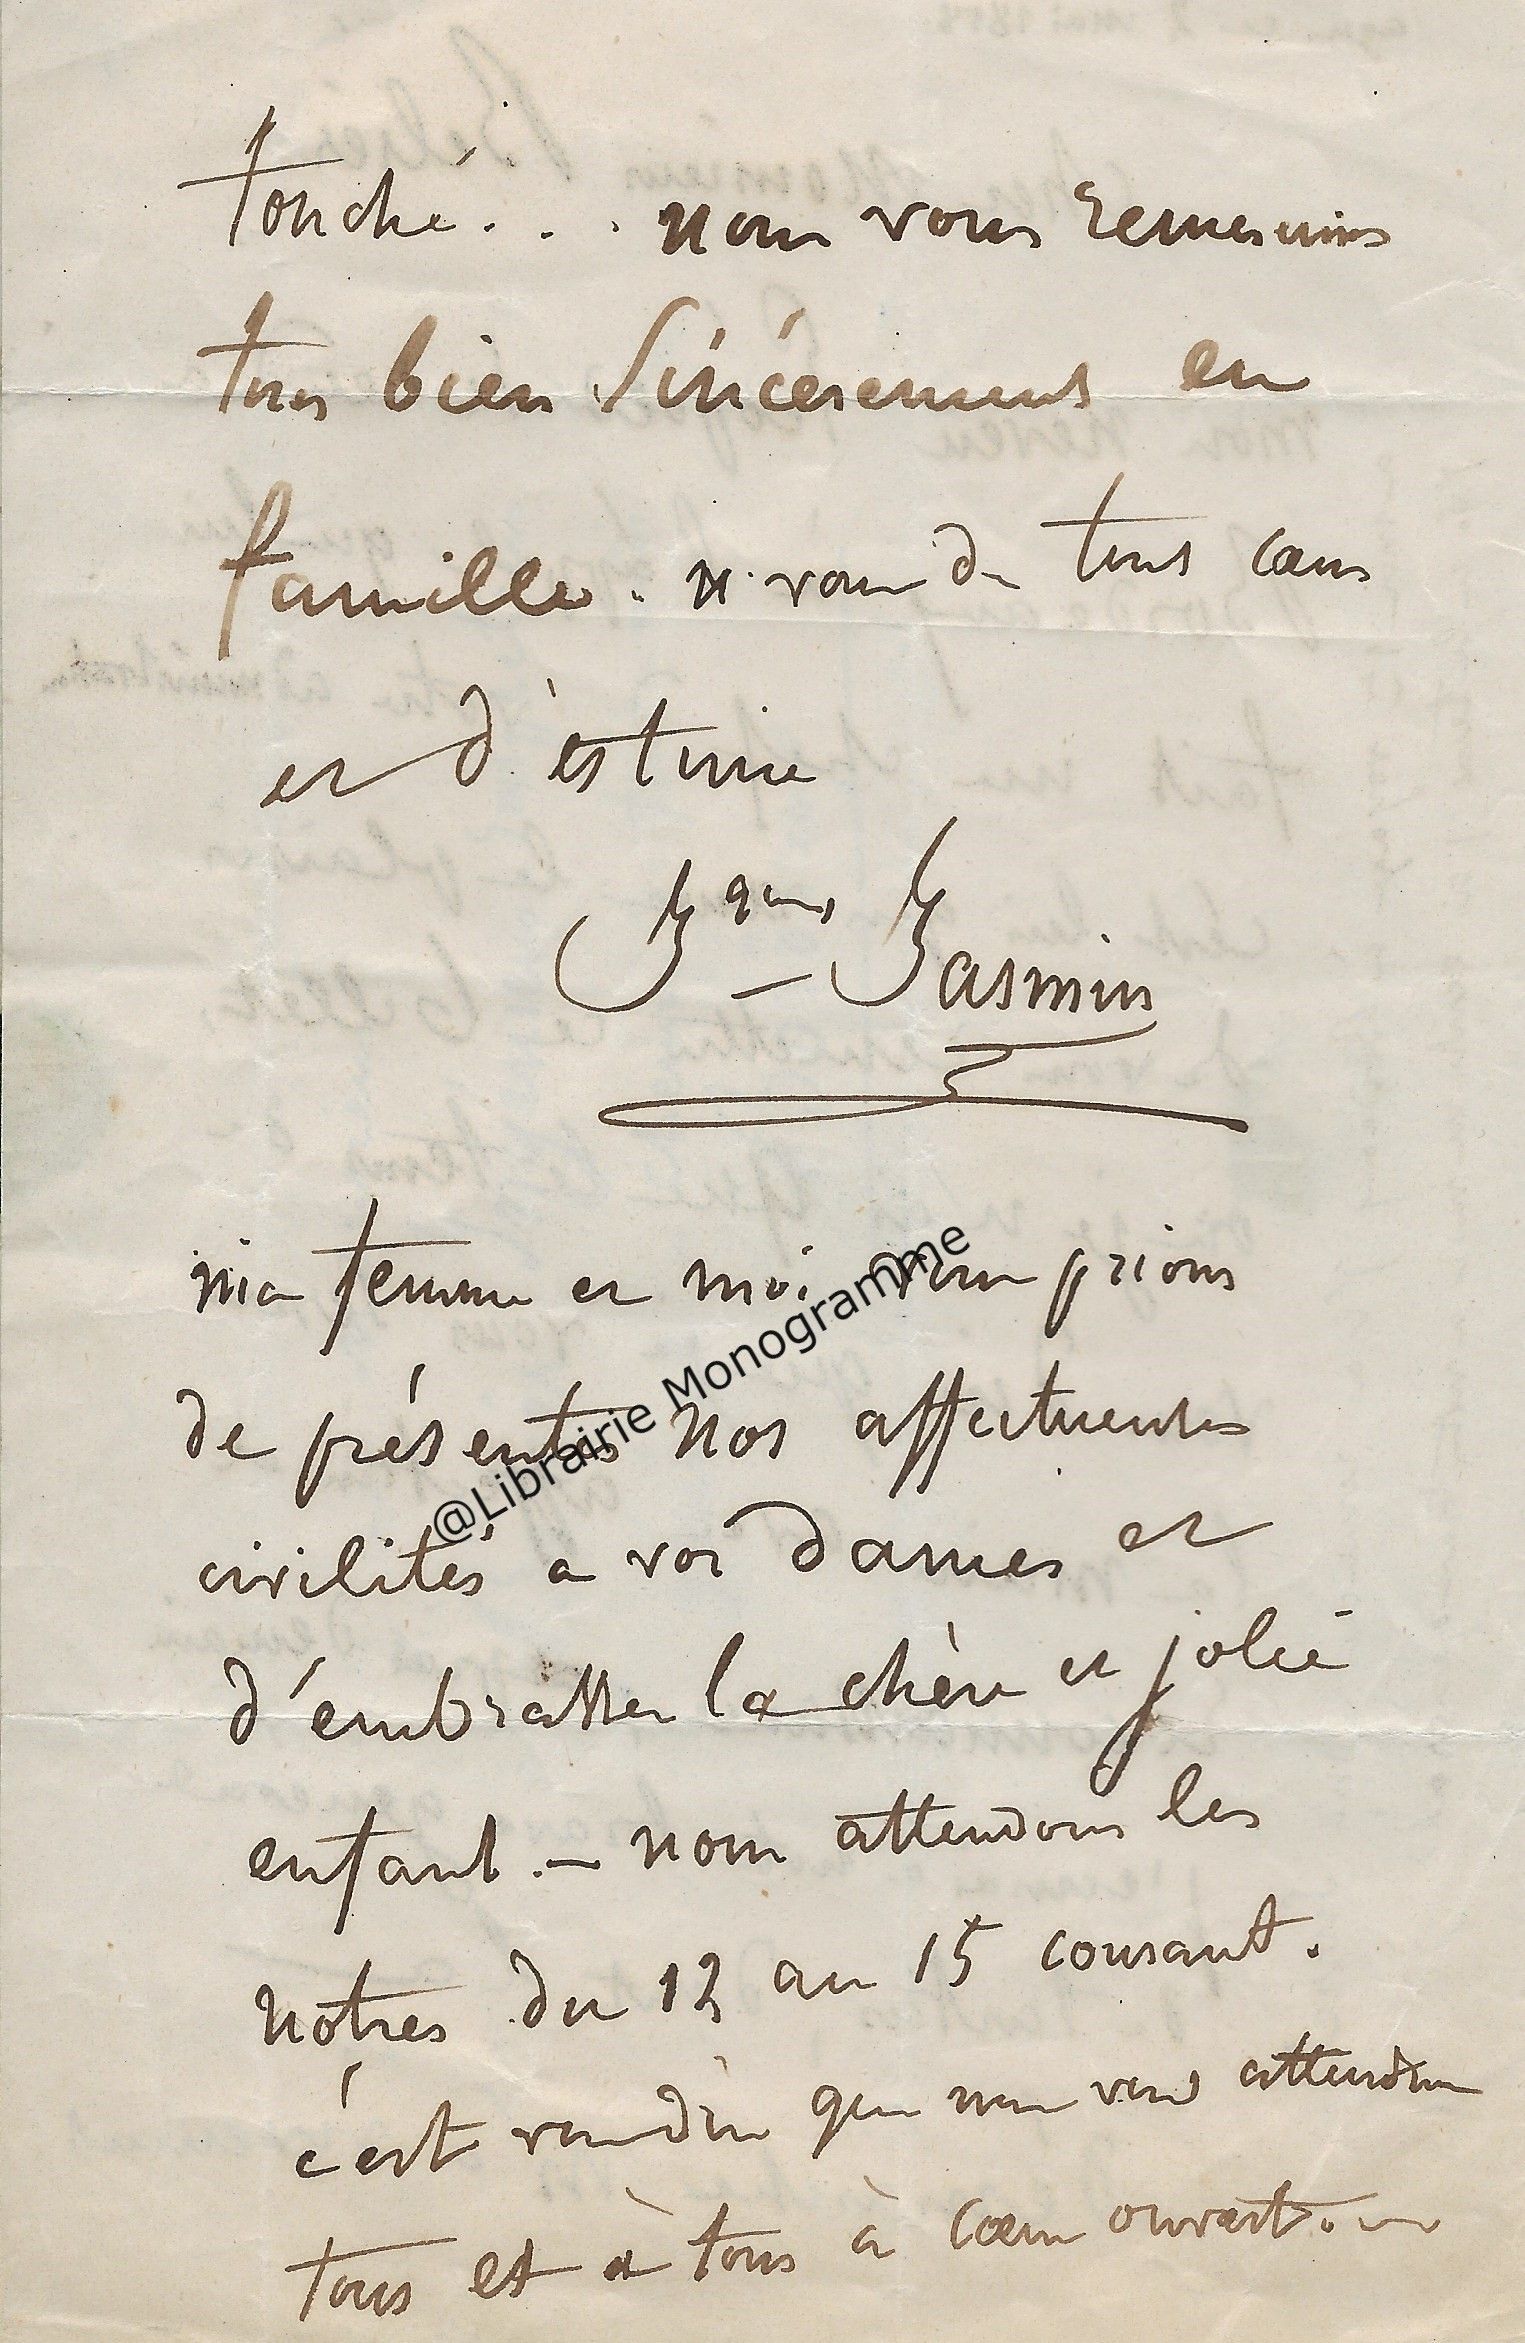 touché... nous vous remercions
tous bien sincèrement en
famille. à vous de tout cœur
et d'estime
Jques Jasmin
ma femme et moi vous prions
de présenter nos affectueuses
civilités à vos dames et
d'embrasser la chère et jolie
enfant. — nous attendons les
nôtres du 12 au 15 courant.
c'est vous dire que nous vous attendons
tous et à tous à cœur ouvert.
@Librairie Monogramme